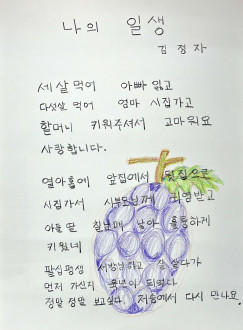 나의 일생
김정자
세살 먹어 아빠 잃고
다섯살 먹어 엄마 시집가고
할머니 키워주셔서 고마워요
사랑합니다.
열아홉에 앞집에서 뒷집으로
시집가서 시부모님께 귀염받고
아들 딸 칠남매 낳아 훌륭하게
키웠네
팔십평생 서방님하고 잘 살다가
먼저 가신지 되었다
정말 정말 보고싶다. 저승에서 다시 만나요.